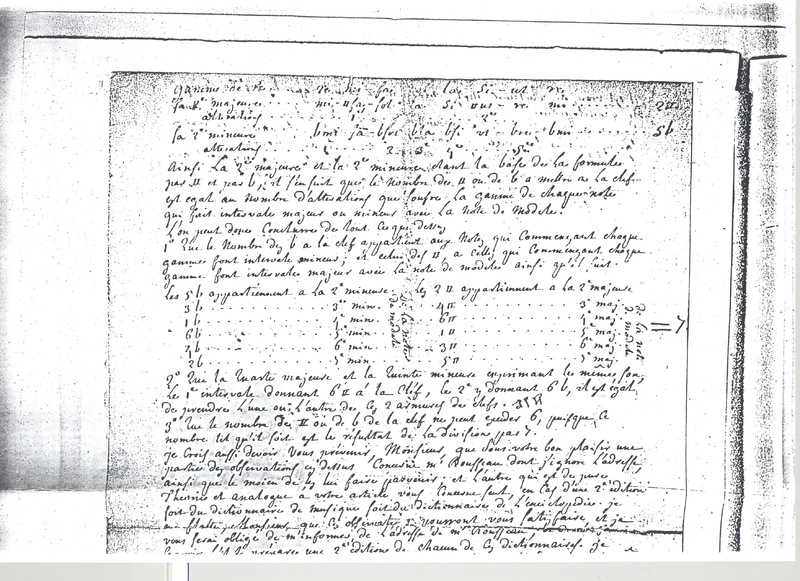 Gamme de re re mi fa la si ut re
la 2e majeure mi fa sol la si ut re mi 2♯
alterations
la 2e mineure bmi fa bsol bla bsi ut bre bmi 5b
alterations 1 2 3 4 5
Ainsi La 2e majeure et la 2e mineure étant la base de la formule
par ♯ et par b, il s'ensuit que le nombre des ♯ ou de b a mettre a la clef
est egal au nombre d'alterations que souffre la gamme de chaque note
qui fait intervale majeur ou mineur avec la note de modele.
L'on peut donc Conclurre de tout Ce que dessus
1° Que le Nombre des b a la clef appartient aux Notes qui Commençant chaque
gammes font intervale mineur; et celui des ♯, a Celles qui Commençant chaque
gamme font intervales majeur avec la note de modele ainsi qu'il suit.
Les 5b appartiennent a La 2e mineure. Les 2♯ appartiennent a la 2e majeure
3b 3e min. de la note de modele 4♯ 3e maj. de la note de modele
1b 4e min. 6♯ 4e maj.
6b 5e min. 1♯ 5e maj. = 7.
4b 6e min. 3♯ 6e maj.
2b 7e min. 5♯ 7e maj.
2° Que la Quarte majeure et la Quinte mineure exprimant les mêmes son
Le 1er intervale donnant 6♯ à la Clef, le 2e y donnant 6b, il est égal
de prendre L'une ou L'autre des Ces 2 armures de clefs.
3° Que le nombre des ♯ ou de b de la clef ne peut exceder 6, puisque Ce
nombre tel qu'il soit est le résultat de La division par 7.
je Crois aussi devoir Vous prévenir, Monsieur, que sous votre bon plaisir une
partie des observations cy dessus Concerne mr Rousseau dont j'ignore L'adresse,
ainsi que le moien de les lui faire parvenir; et L'autre qui est de pure
Theorie et analogue a votre article vous Concerne seul, en Cas d'une 2e edition
soit du dictionnaire de musique soit du dictionnaire de L'enciclopedie. je
me flatte, Monsieur que Ces observations pourront vous satisfaire, et je
vous serai obligé de m'informer de L'adresse de mr Rousseau
prépare une 2e editions de chacun de Ces dictionnaires. je